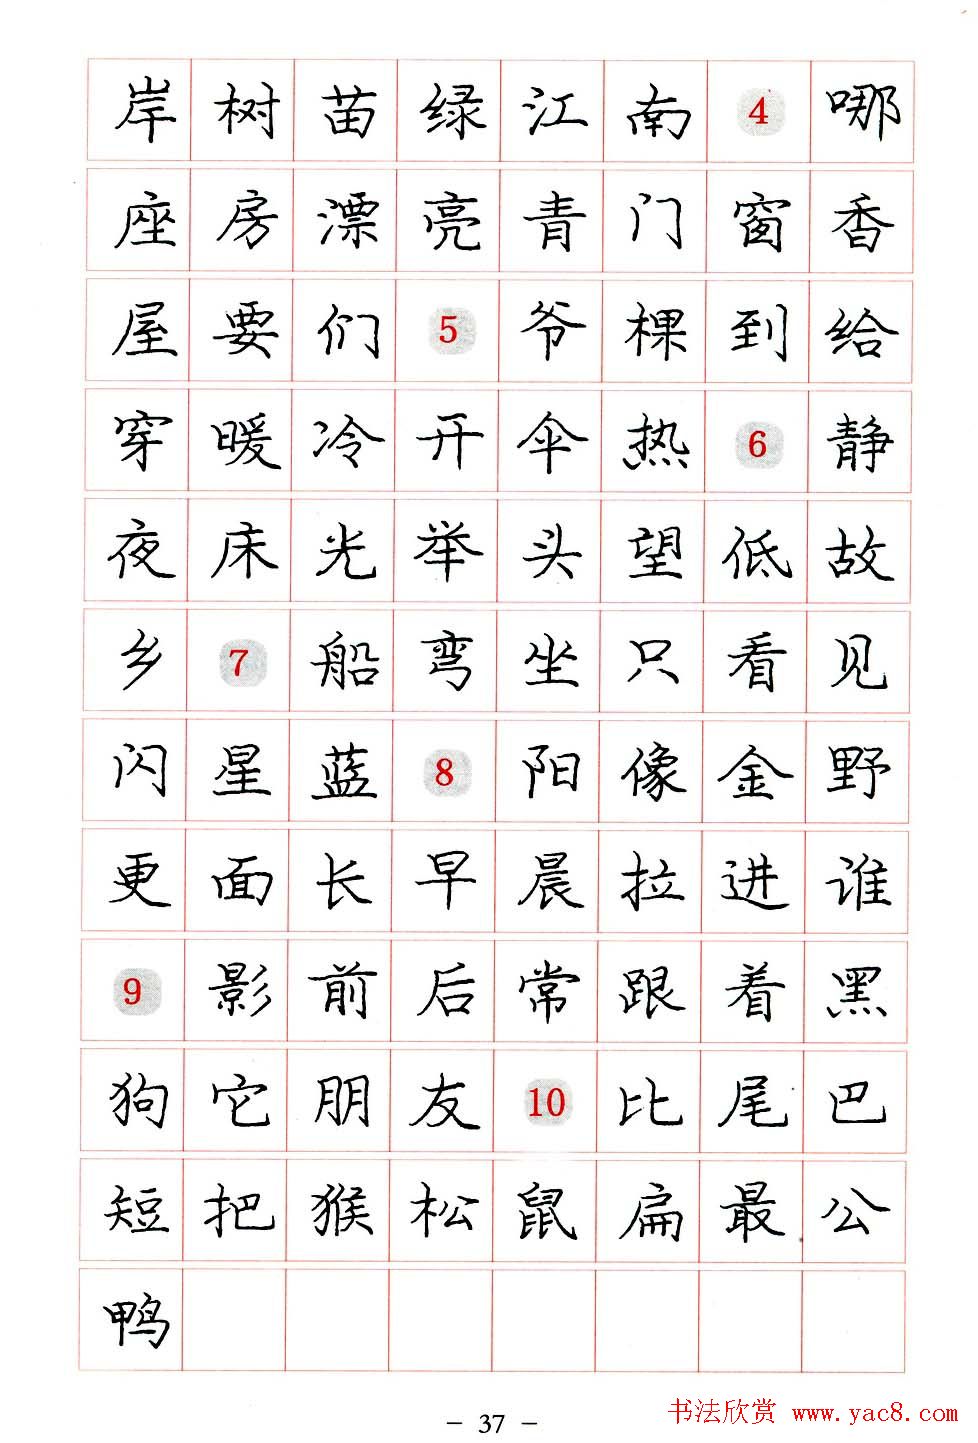 岸树苗绿江南4哪
座房漂亮青门窗香
屋要们5爷棵到给
穿暖冷开伞热6静
夜床光举头望低故
乡7船弯坐只看见
闪星蓝8阳像金野
更面长早晨拉进谁
9影前后常跟着黑
狗它朋友10比尾巴
短把猴松鼠扁最公
鸭
- 37 -
书法欣赏 www.yac8.com